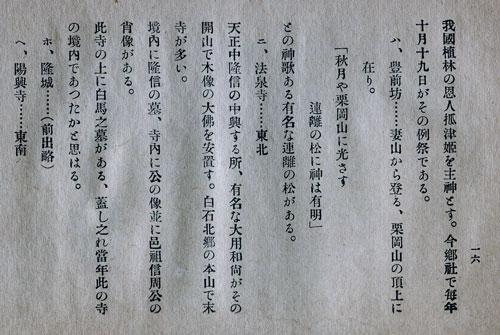 一六
我國植林の恩人抓津姫を主神とす。今鄉社で每年
十月十九日がその例祭である。
ハ、豊前坊……妻山から登る、栗岡山の頂上に
在り。
「秋月や栗岡山に光さす
連離の松に神は有明」
との神歌ある有名な連離の松がある。
ニ、法泉寺……東北
天正中隆信の中興する所、有名な大用和尙がその
開山で木像の大佛を安置す。白石北鄕の本山で末
寺が多い。
境內に隆信の墓、寺內に公の像並に邑祖信周公の
肖像がある。
此寺の上に白馬之墓がある、蓋し之れ當年此の寺
の境內であつたかと思はる。
ホ、隆城……(前出略)
ヘ、陽興寺……東南